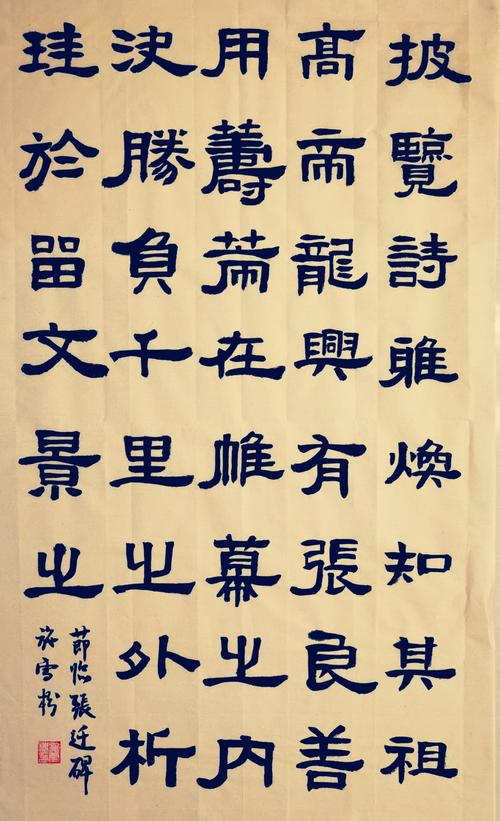 披覽詩雅煥知其祖
高帝龍興有張良善
用籌策在帷幕之內
決勝負千里之外析
珪於留文景之
節臨張迁碑
雪松